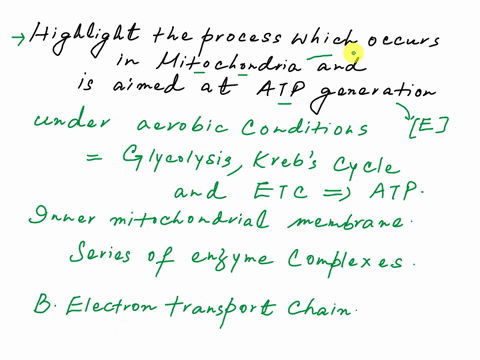 → Highlight the process which occurs
in Mitochondria and
is aimed at ATP generation
under aerobic Conditions [E]
= Glycolysis, Kreb's Cycle
and ETC => ATP.
Inner mitochondrial membrane.
Series of enzyme Complexes.
B. Electron transport Chain.